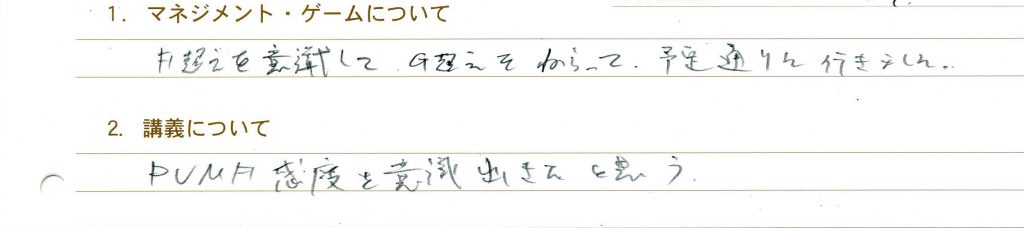 1. マネジメント・ゲームについて
A超えを意識して G超えをねらって、予定通りに行きました。
2. 講義について
PVMA感度を意識出きたと思う。